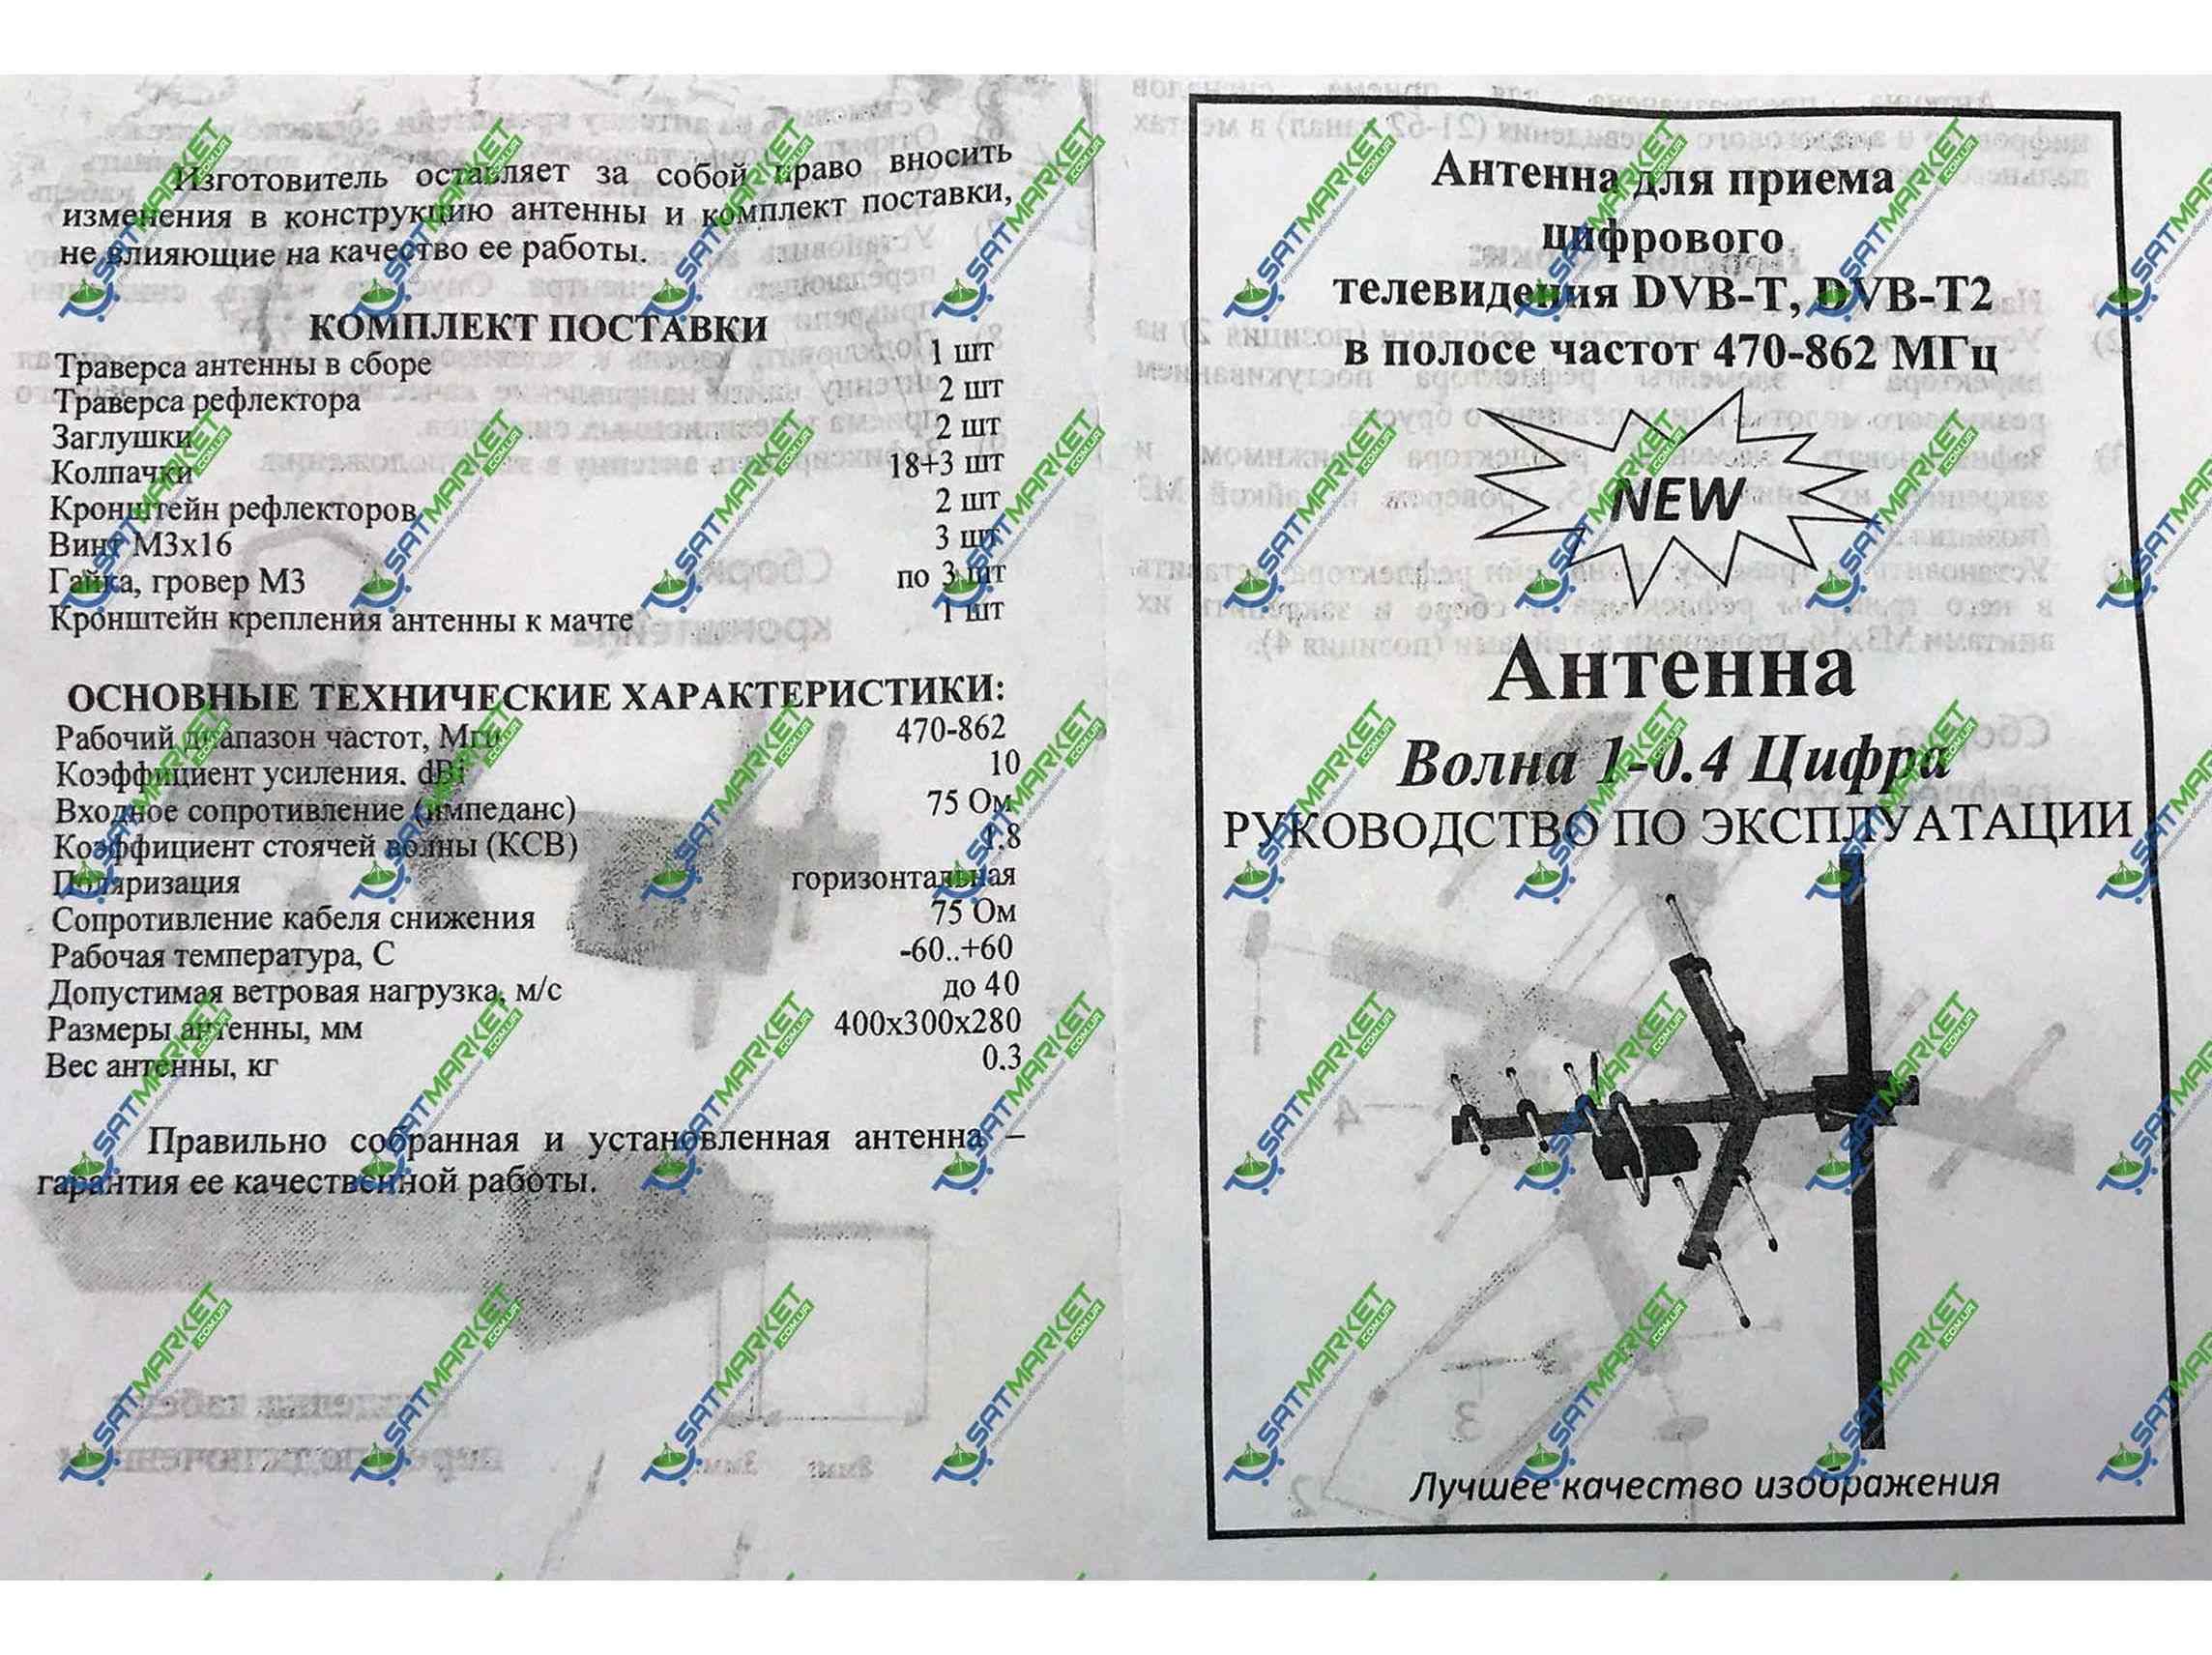 Изготовитель оставляет за собой право вносить
изменения в конструкцию антенны и комплект поставки,
не влияющие на качество ее работы.
КОМПЛЕКТ ПОСТАВКИ
Траверса антенны в сборе 1 шт
Траверса рефлектора 2 шт
Заглушки 2 шт
Колпачки 18+3 шт
Кронштейн рефлекторов 2 шт
Винт М3х16 3 шт
Гайка, гровер М3 по 3 шт
Кронштейн крепления антенны к мачте 1 шт
ОСНОВНЫЕ ТЕХНИЧЕСКИЕ ХАРАКТЕРИСТИКИ:
Рабочий диапазон частот, Мгц 470-862
Коэффициент усиления. dBi 10
Входное сопротивление (импеданс) 75 Ом
Коэффициент стоячей волны (КСВ) 1.8
Поляризация горизонтальная
Сопротивление кабеля снижения 75 Ом
Рабочая температура, С -60..+60
Допустимая ветровая нагрузка, м/с до 40
Размеры антенны, мм 400х300х280
Вес антенны, кг 0.3
Правильно собранная и установленная антенна –
гарантия ее качественной работы.
Антенна для приема
цифрового
телевидения DVB-T, DVB-T2
в полосе частот 470-862 МГц
NEW
Антенна
Волна 1-0.4 Цифра
РУКОВОДСТВО ПО ЭКСПЛУАТАЦИИ
Лучшее качество изображения
SATMARKET
.COM.UA